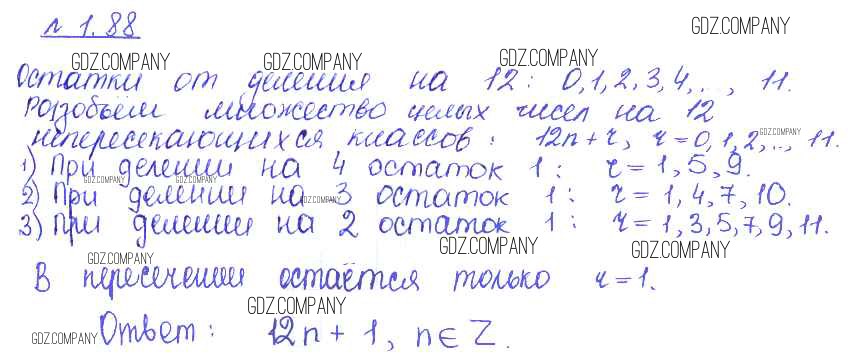 № 1.88
GDZ.COMPANY
GDZ.COMPANY GDZ.COMPANY GDZ.COMPANY
Остатки от деления на 12: 0,1,2,3,4,..., 11.
разобъём множество целых чисел на 12
непересекающихся классов: 12n+r, r=0,1,2,..., 11.
GDZ.COMPANY
1) При делении на 4 остаток 1: r=1,5,9.
GDZ.COMPANY GDZ.COMPANY
2) При делении на 3 остаток 1: r=1,4,7,10.
GDZ.COMPANY
3) При делении на 2 остаток 1: r=1,3,5,7,9,11.
GDZ.COMPANY GDZ.COMPANY
GDZ.COMPANY
В пересечении остаётся только r=1.
GDZ.COMPANY
GDZ.COMPANY Ответ: 12n+1, n∈Z.